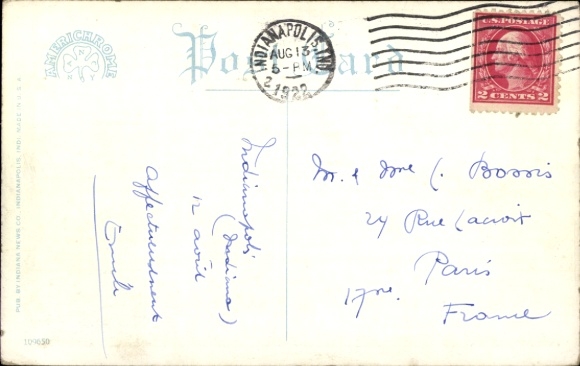 AMERICHROME
Post Card
INDIANAPOLIS, IND.
AUG 13
5-PM
1922
2
U.S. POSTAGE
2 CENTS 2
PUB. BY INDIANA NEWS CO., INDIANAPOLIS, IND. MADE IN U.S.A.
Indianapolis
(Indiana)
12 août
Affectueusement
M. & Mme C. Bossis
24 Rue Lacroix
Paris
17me.
France
109650